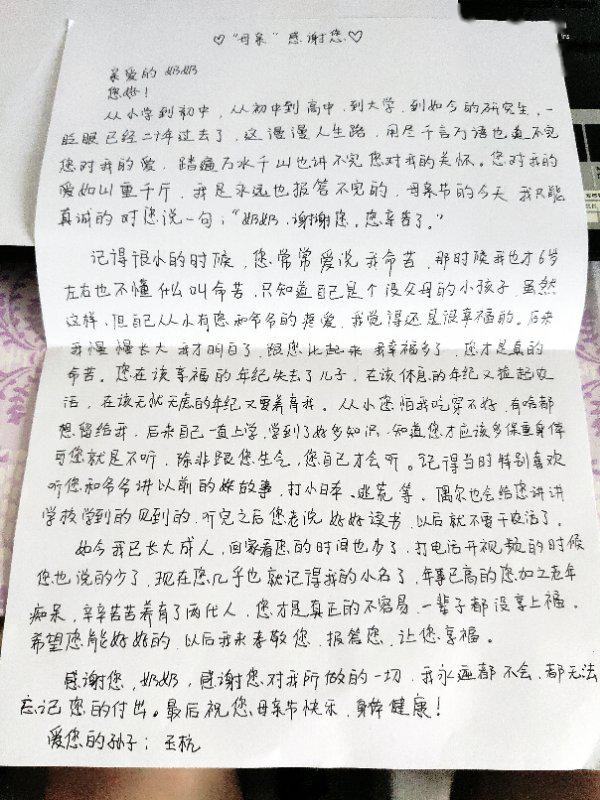 ♡"母亲"感谢您♡
亲爱的奶奶
您好！
从小学到初中，从初中到高中，到大学，到如今的研究生，一
眨眼已经二十年过去了，这漫漫人生路，用尽千言万语也道不完
您对我的爱，踏遍万水千山也讲不完您对我的关怀。您对我的
爱如山重千斤，我是永远也报答不完的，母亲节的今天我只能
真诚的对您说一句："奶奶，谢谢您，您辛苦了。"
记得很小的时候，您常常爱说我命苦，那时候我也才6岁
左右也不懂什么叫命苦，只知道自己是个没父母的小孩子，虽然
这样，但自己从小有您和爷爷的疼爱，我觉得还是很幸福的。后来
我慢慢长大我才明白了，跟您比起来我幸福多了，您才是真的
命苦。您在该享福的年纪失去了儿子，在该休息的年纪又捡起农
活，在该无忧无虑的年纪又要养育我。从小您怕我吃穿不好，有啥都
想留给我，后来自己一直上学，学到了好多知识，知道您才应该多保重身体
可您就是不听，除非跟您生气，您自己才会听。记得当时特别喜欢
听您和爷爷讲以前的故事，打小日本、逃荒等，偶尔也会给您讲讲
学校学到的见到的，听完之后您老说好好读书，以后就不要干农活了。
如今我已长大成人，回家看您的时间也少了，打电话开视频的时候
您也说的少了，现在您几乎也就记得我的小名了，年事已高的您加之老年
痴呆，辛辛苦苦养育了两代人，您才是真正的不容易，一辈子都没享上福。
希望您能好好的，以后我来孝敬您，报答您，让您享福。
感谢您，奶奶，感谢您对我所做的一切，我永远都不会，都无法
忘记您的付出。最后祝您母亲节快乐，身体健康！
爱您的孙子：王杭